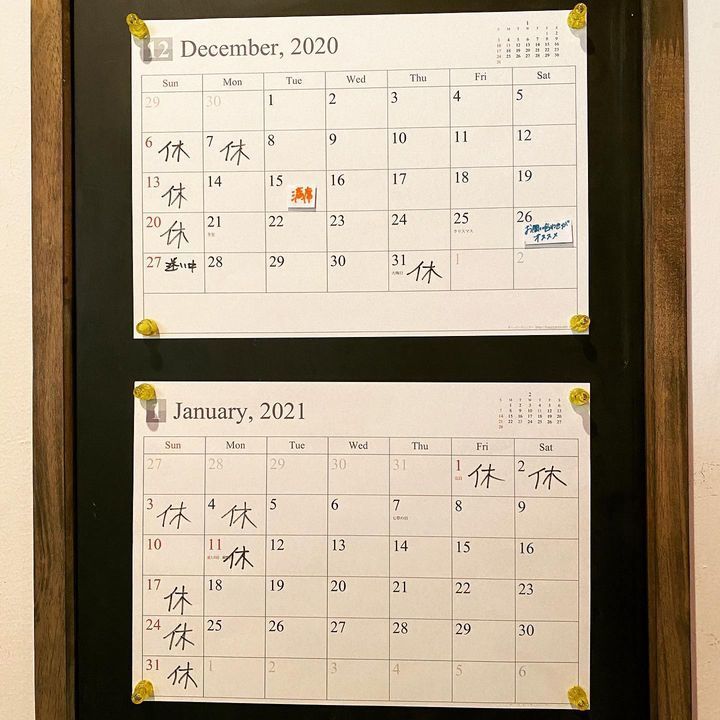 12 December, 2020
1
Sun Mon Tue Wed Thu Fri Sat
29 30 1 2 3 4 5
6 休 7 休 8 9 10 11 12
13 休 14 15 満席 16 17 18 19
20 休 21 冬至 22 23 24 25 クリスマス 26 お問い合わせが
オススメ
27 28 29 30 31 大晦日 休 1 2
1 January, 2021
2
Sun Mon Tue Wed Thu Fri Sat
27 28 29 30 31 1 元日 休 2 休
3 休 4 休 5 6 7 七草の日 8 9
10 11 成人の日 休 12 13 14 15 16
17 休 18 19 20 21 22 23
24 休 25 26 27 28 29 30
31 休 1 2 3 4 5 6